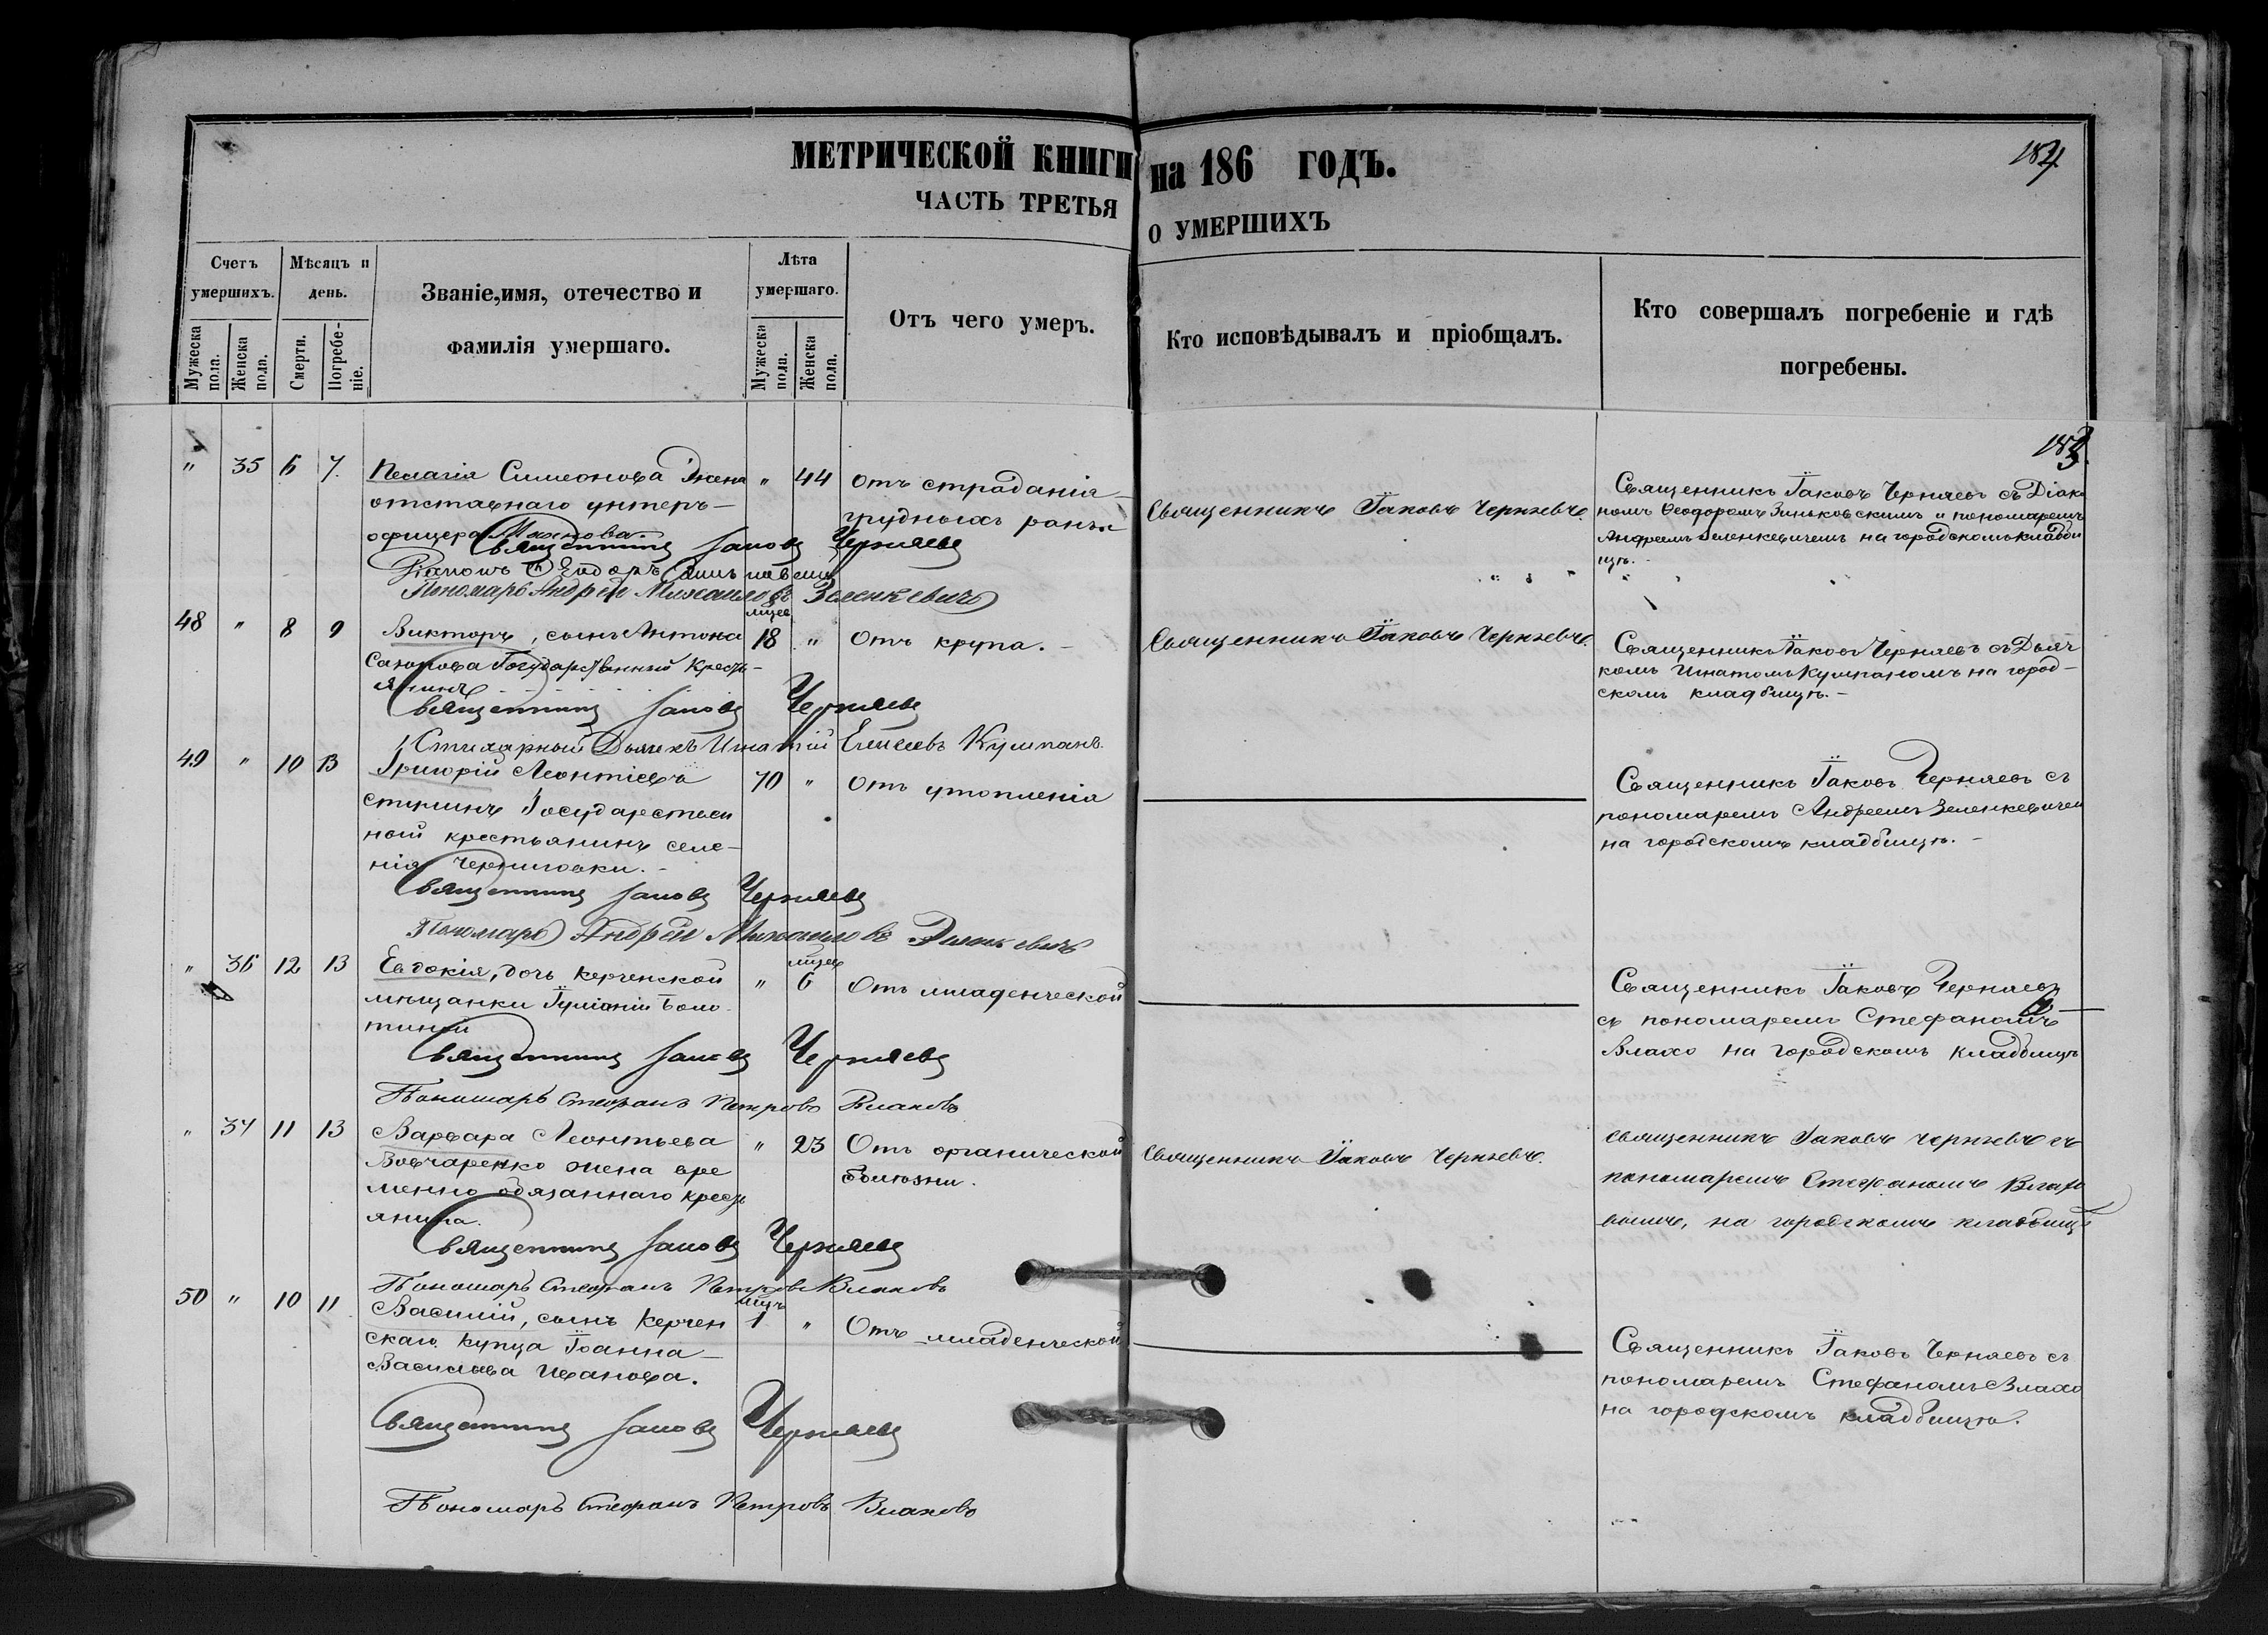 МЕТРИЧЕСКОЙ КНИГИ на 186 ГОДЪ.
184.
ЧАСТЬ ТРЕТЬЯ о УМЕРШИХЪ
Счетъ умершихъ.
Мѣсяцъ и день.
Званіе, имя, отечество и фамилія умершаго.
Лѣта умершаго.
Отъ чего умеръ.
Кто исповѣдывалъ и пріобщалъ.
Кто совершалъ погребеніе и гдѣ погребены.
Мужеска пола.
Женска пола.
Смерти.
Погребе-ніе.
Мужеска пола.
Женска пола.
" 35 6 7. Пелагія Симеонова жена " 44 отъ страданія
отставнаго унтеръ- грудныхъ ранъ
офицера
Священникъ Іаковъ Черняевъ.
Священникъ Іаковъ Черняевъ съ Діако
номъ Ѳеодоромъ Зиньковскимъ и пономаремъ
Андреемъ Зеленкевичемъ на городскомъ кладби
щѣ.
Священникъ Іаковъ Черняевъ
Пономарь Андрей Михаиловъ Зеленкевичъ
48 " 8 9 Викторъ, сынъ Антона 18 " отъ крупа.-
Государственный Кресть-
янинъ
Священникъ Іаковъ Черняевъ.
Священникъ Іаковъ Черняевъ съ Дьяч
комъ Игнатомъ Кумпаномъ на город-
скомъ кладбищѣ.-
Священникъ Іаковъ Черняевъ
Стихарный Дьячекъ Игнатій Елисеевъ Кумпанъ.
49 " 10 13 Григорій Леонтіевъ 70 " отъ утопленія
Государствен
ный крестьянинъ селе-
нія Черниговки.-
Священникъ Іаковъ Черняевъ съ
пономаремъ Андреемъ Зеленкевичем
на городскомъ кладбищѣ.-
Священникъ Іаковъ Черняевъ
Пономарь Андрей Михаиловъ Зеленкевичъ
" 36 12 13 Евдокія, дочь керченской " 6 Отъ младенческой
мѣщанки Іуліаніи Боло
тиной
Священникъ Іаковъ Черняевъ
съ пономаремъ Стефаномъ
Влахо на городскомъ кладбищѣ
Священникъ Іаковъ Черняевъ
Пономарь Стефанъ Петровъ Влаховъ
" 37 11 13 Варвара Леонтьева " 23 Отъ органической
Вовчаренко жена вре болѣзни.
менно обязаннаго крестъ
янина.
Священникъ Іаковъ Черняевъ.
Священникъ Іаковъ Черняевъ съ
пономаремъ Стефаномъ Влахо
вымъ, на городскомъ кладбищѣ
Священникъ Іаковъ Черняевъ
Пономарь Стефанъ Петровъ Влаховъ
50 " 10 11 Василій, сынъ Керчен 1 " Отъ младенческой
скаго купца Іоанна
Васильева Иванова.
Священникъ Іаковъ Черняевъ съ
пономаремъ Стефаномъ Влахо
на городскомъ кладбищѣ.
Священникъ Іаковъ Черняевъ
Пономарь Стефанъ Петровъ Влаховъ